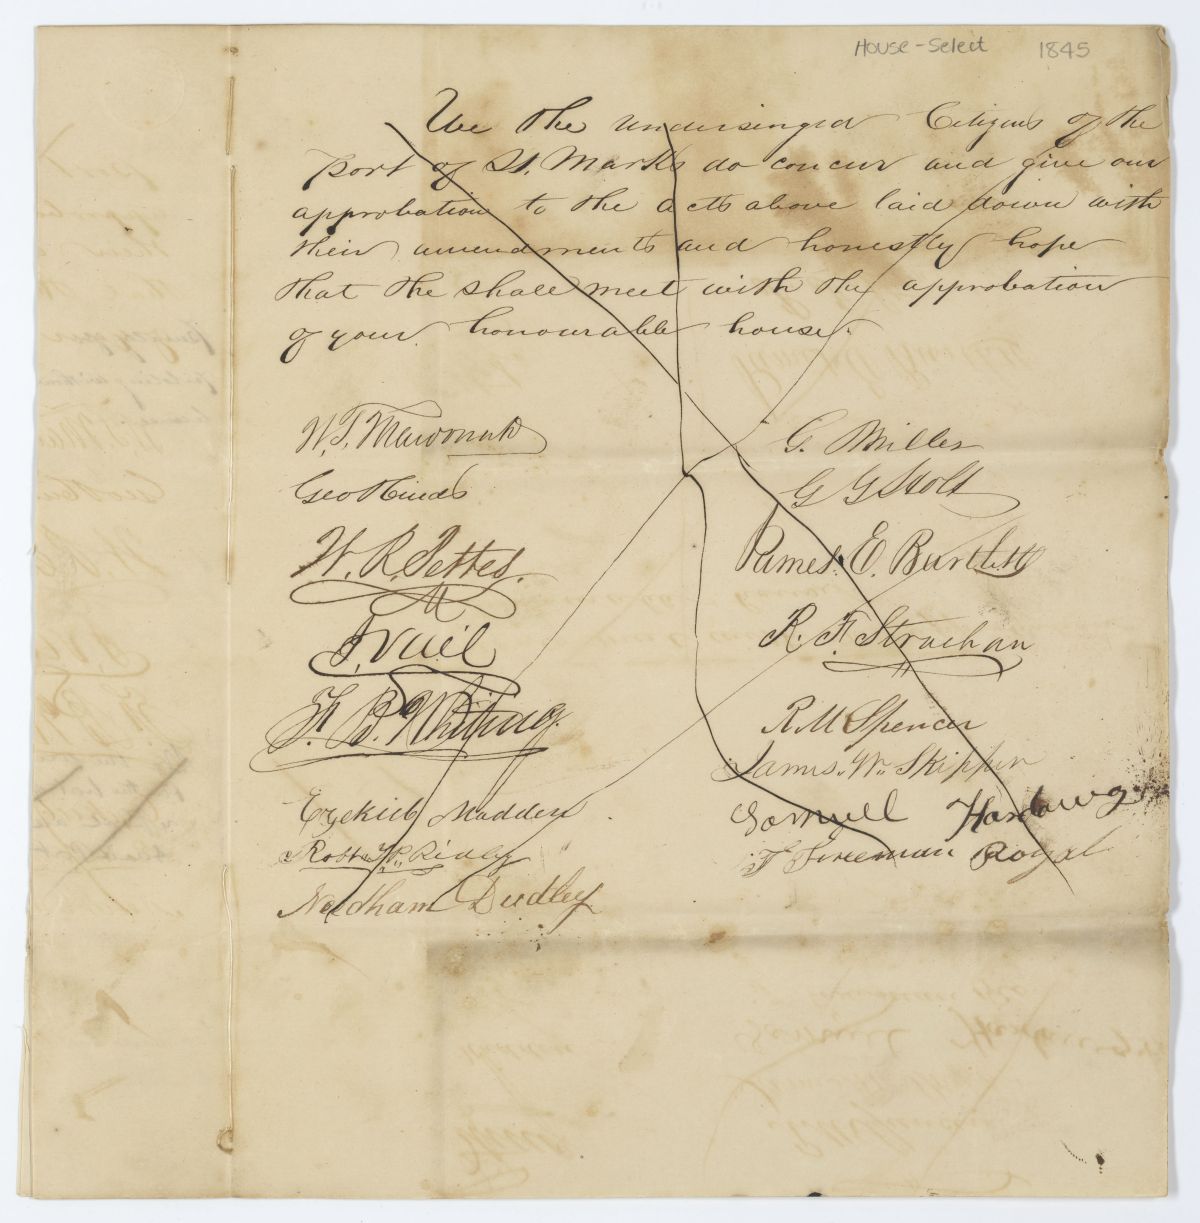 House-Select 1845
We the undersinged Citizens of the
port of St. Marks do concur and give our
approbation to the acts above laid down with
their amendments and honestly hope
that the shall meet with the approbation
of your honourable house.
W. T.
Geo Hinds
W. R. Pettes.
F. B. Whiting.
Ezekiel Madden
Robt Ridley
Needham Dudley
G. Miller
G G Holt
James. E. Bartlett
R. F. Strachan
R. M Spencer
James. W. Skipper
Samuell
F Fireeman Royal